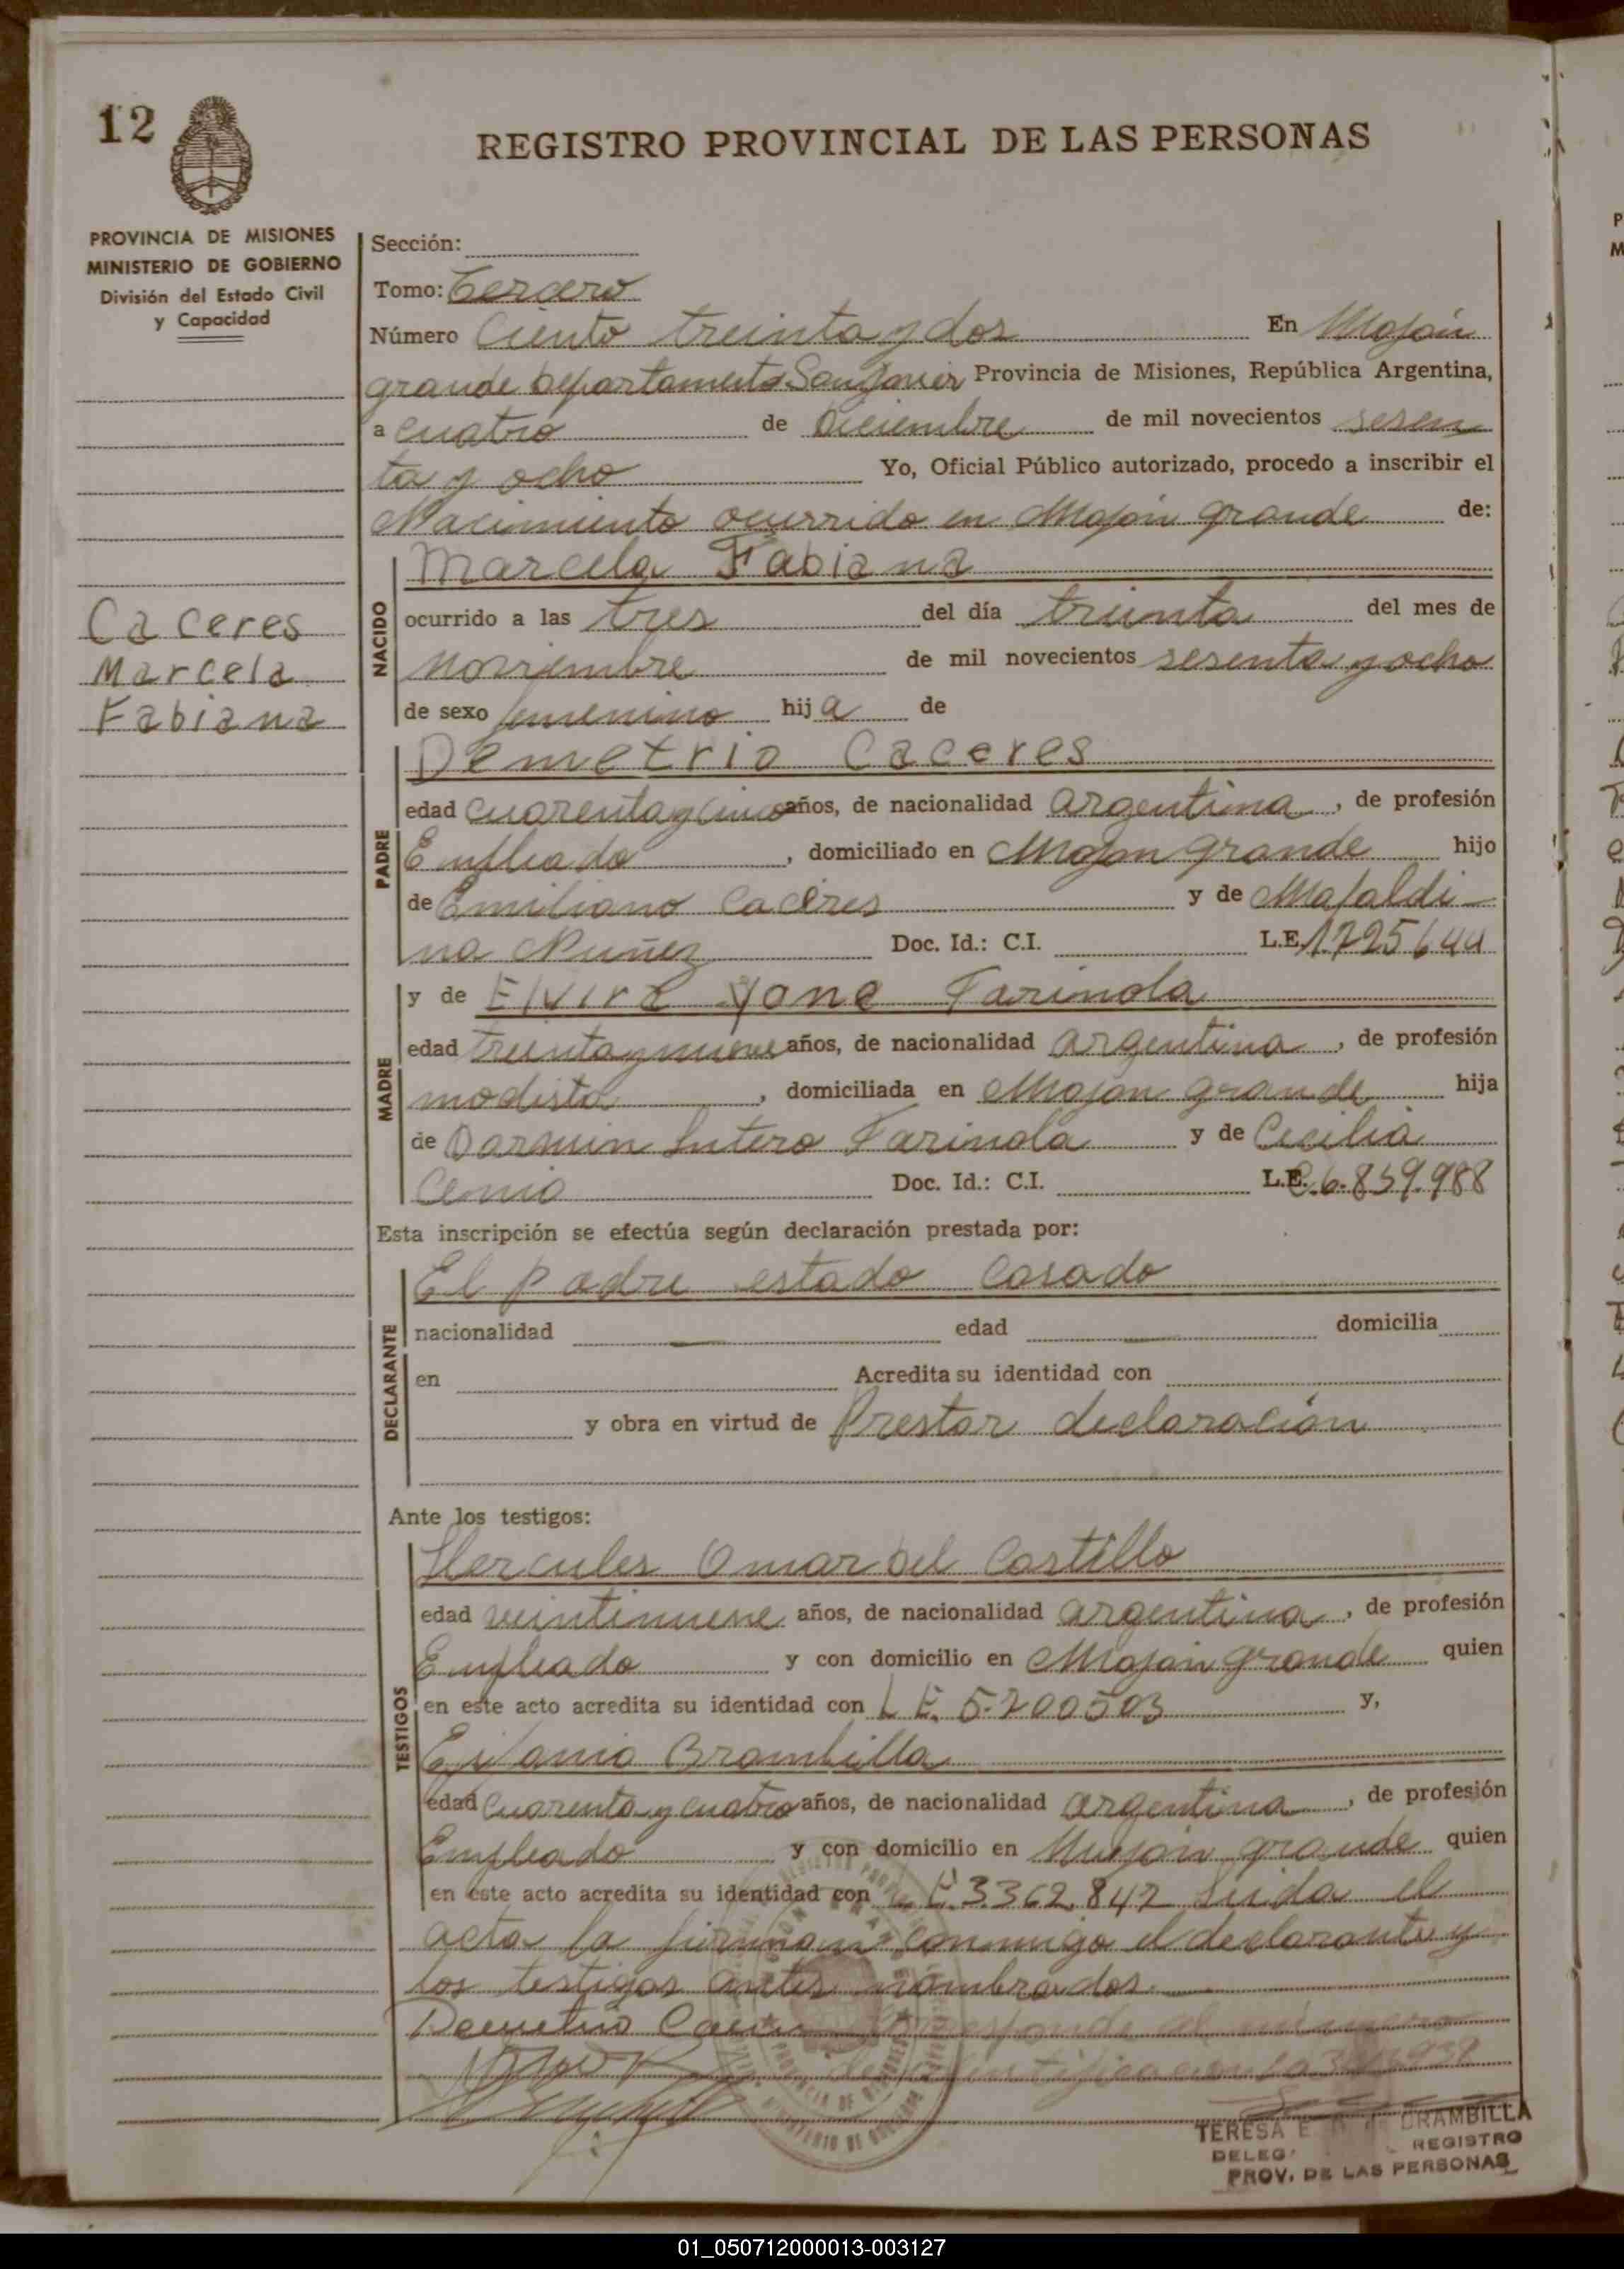 12
REGISTRO PROVINCIAL DE LAS PERSONAS
PROVINCIA DE MISIONES
MINISTERIO DE GOBIERNO
División del Estado Civil
y Capacidad
Caceres
Marcela
Fabiana
Sección:
Tomo: Tercero
Número Ciento treinta y dos En Mojón
grande Departamento San Javier Provincia de Misiones, República Argentina,
a cuatro de Diciembre de mil novecientos sesen
ta y ocho Yo, Oficial Público autorizado, procedo a inscribir el
Nacimiento ocurrido en Mojón grande de:
NACIDO
Marcela Fabiana
ocurrido a las tres del día treinta del mes de
Noviembre de mil novecientos sesenta y ocho
de sexo femenino hija de
PADRE
Demetrio Caceres
edad cuarenta y cinco años, de nacionalidad argentina, de profesión
Empleado, domiciliado en Mojon grande hijo
de Emiliano Caceres y de Mafaldi-
na Nuñez Doc. Id.: C.I. L.E. 1725644
MADRE
y de Elvira Yone Farinola
edad treinta y nueve años, de nacionalidad argentina, de profesión
modista, domiciliada en Mojon grande hija
de Darwin Lutero Farinola y de Cecilia
Doc. Id.: C.I. L.E. 6.839.988
Esta inscripción se efectúa según declaración prestada por:
DECLARANTE
El padre estado Casado
nacionalidad edad domicilia
en Acredita su identidad con
y obra en virtud de Prestar declaración
Ante los testigos:
TESTIGOS
Hercules Omar Del Castillo
edad veintinueve años, de nacionalidad argentina, de profesión
Empleado y con domicilio en Mojón grande quien
en este acto acredita su identidad con L.E. 5.200503 y,
Brambilla
edad cuarenta y cuatro años, de nacionalidad argentina, de profesión
Empleado y con domicilio en Mojón grande quien
en este acto acredita su identidad con L.E. 3.362.842 Leida el
acta la firman conmigo el declarante y
los testigos antes nombrados.
Demetrio Caceres
TERESA E BRAMBILLA
DELEG REGISTRO
PROV. DE LAS PERSONAS
01_050712000013-003127